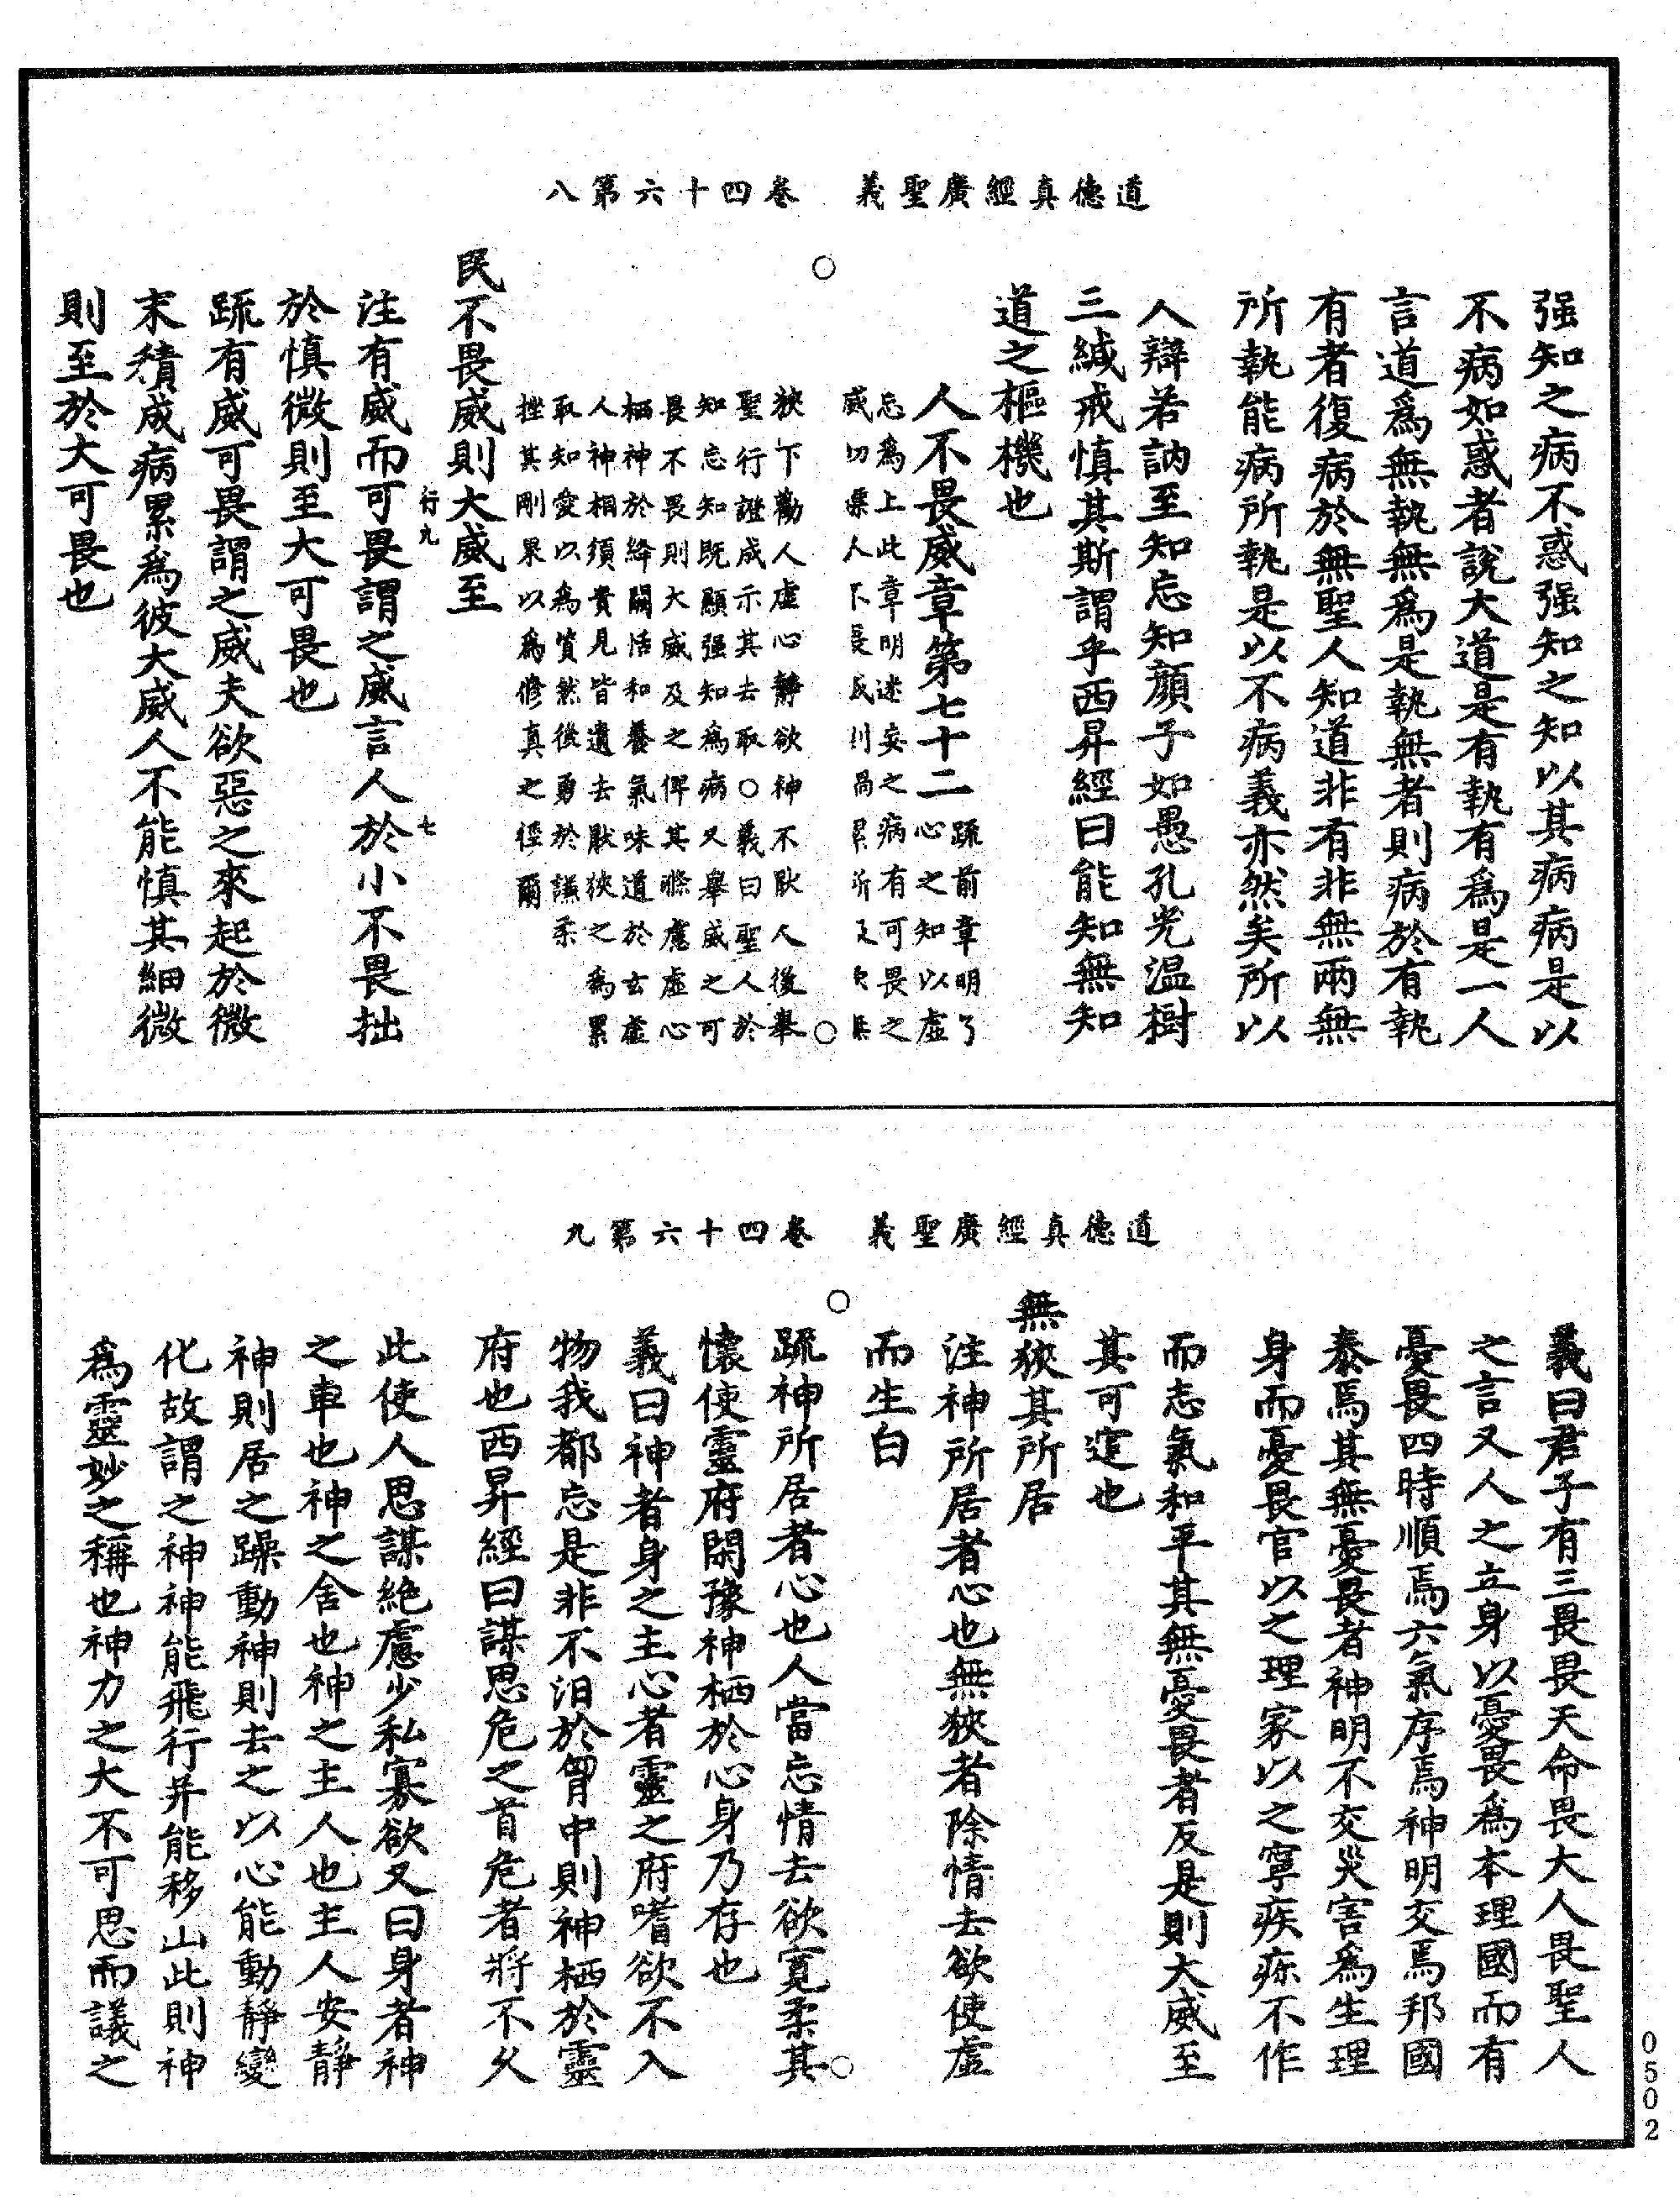 道德真經廣聖義　卷四十六第八
强知之病不惑强知之知以其病病是以
不病如惑者說大道是有執有為是一人
言道為無執無為是執無者則病於有執
有者復病於無聖人知道非有非無兩無
所執能病所執是以不病義亦然矣所以
人辯若訥至知忘知顏子如愚孔光温樹
三緘戒慎其斯謂乎西昇經曰能知無知
道之樞機也
人不畏威章第七十二
疏前章明了
心之知以虛
忘為上此章明迷妄之病有可畏之
威切
人不
狹下勸人虛心靜欲神不猒人後舉
聖行證成示其去取○義曰聖人於
知忘知既顯强知為病又舉威之可
畏不畏則大威及之俾其滌慮虛心
栖神於絳闕恬和養氣味道於玄虛
人神相須貴見皆遺去猒狹之為累
取知愛以為質然後勇於謙柔
挫其剛果以為修真之徑爾
民不畏威則大威至
行九
七
注有威而可畏謂之威言人於小不畏拙
於慎微則至大可畏也
疏有威可畏謂之威夫欲惡之來起於微
末積成病累為彼大威人不能慎其細微
則至於大可畏也
道德真經廣聖義　卷四十六第九
義曰君子有三畏畏天命畏大人畏聖人
之言又人之立身以憂畏為本理國而有
憂畏四時順焉六氣序焉神明交焉邦國
泰焉其無憂畏者神明不交災害為生理
身而憂畏官以之理家以之寧疾疹不作
而志氣和平其無憂畏者反是則大威至
其可逭也
無狹其所居
注神所居者心也無狹者除情去欲使虛
而生白
疏神所居者心也人當忘情去欲寬柔其
懷使靈府閑豫神栖於心身乃存也
義曰神者身之主心者靈之府嗜欲不入
物我都忘是非不汨於胷中則神栖於靈
府也西昇經曰謀思危之首危者將不久
此使人思謀絶慮少私寡欲又曰身者神
之車也神之舍也神之主人也主人安靜
神則居之躁動神則去之以心能動靜變
化故謂之神神能飛行并能移山此則神
為靈妙之稱也神力之大不可思而議之
0502